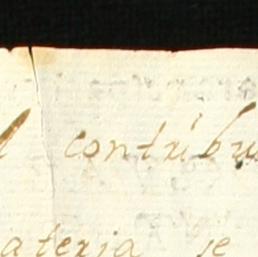 contribu
ateria se